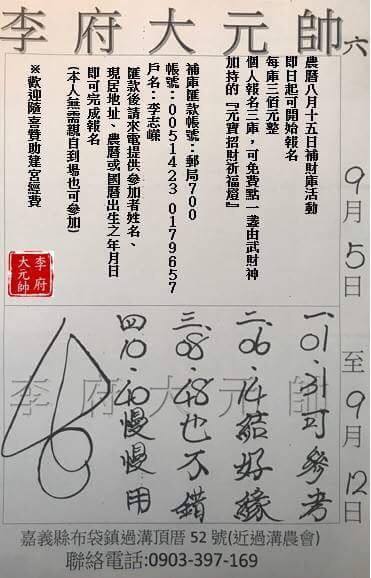 李府大元帥 六
農曆八月十五日補財庫活動
即日起可開始報名
每庫三佰元整
個人報名三庫,可免費點一盞由武財神
加持的『元寶招財祈福燈』
補庫匯款帳號:郵局700
帳號:0051423 0179657
戶名:李志嶸
匯款後請來電提供參加者姓名、
現居地址、農曆或國曆出生之年月日
即可完成報名
(本人無需親自到場也可參加)
※歡迎隨喜贊助建宮經費
李府
大元帥
9月5日 至 9月12日
李府大元帥
一、01.31可參考
二、06.14結好緣
三、08.48也不錯
四、10.40慢慢用
嘉義縣布袋鎮過溝頂厝 52 號(近過溝農會)
聯絡電話:0903-397-169